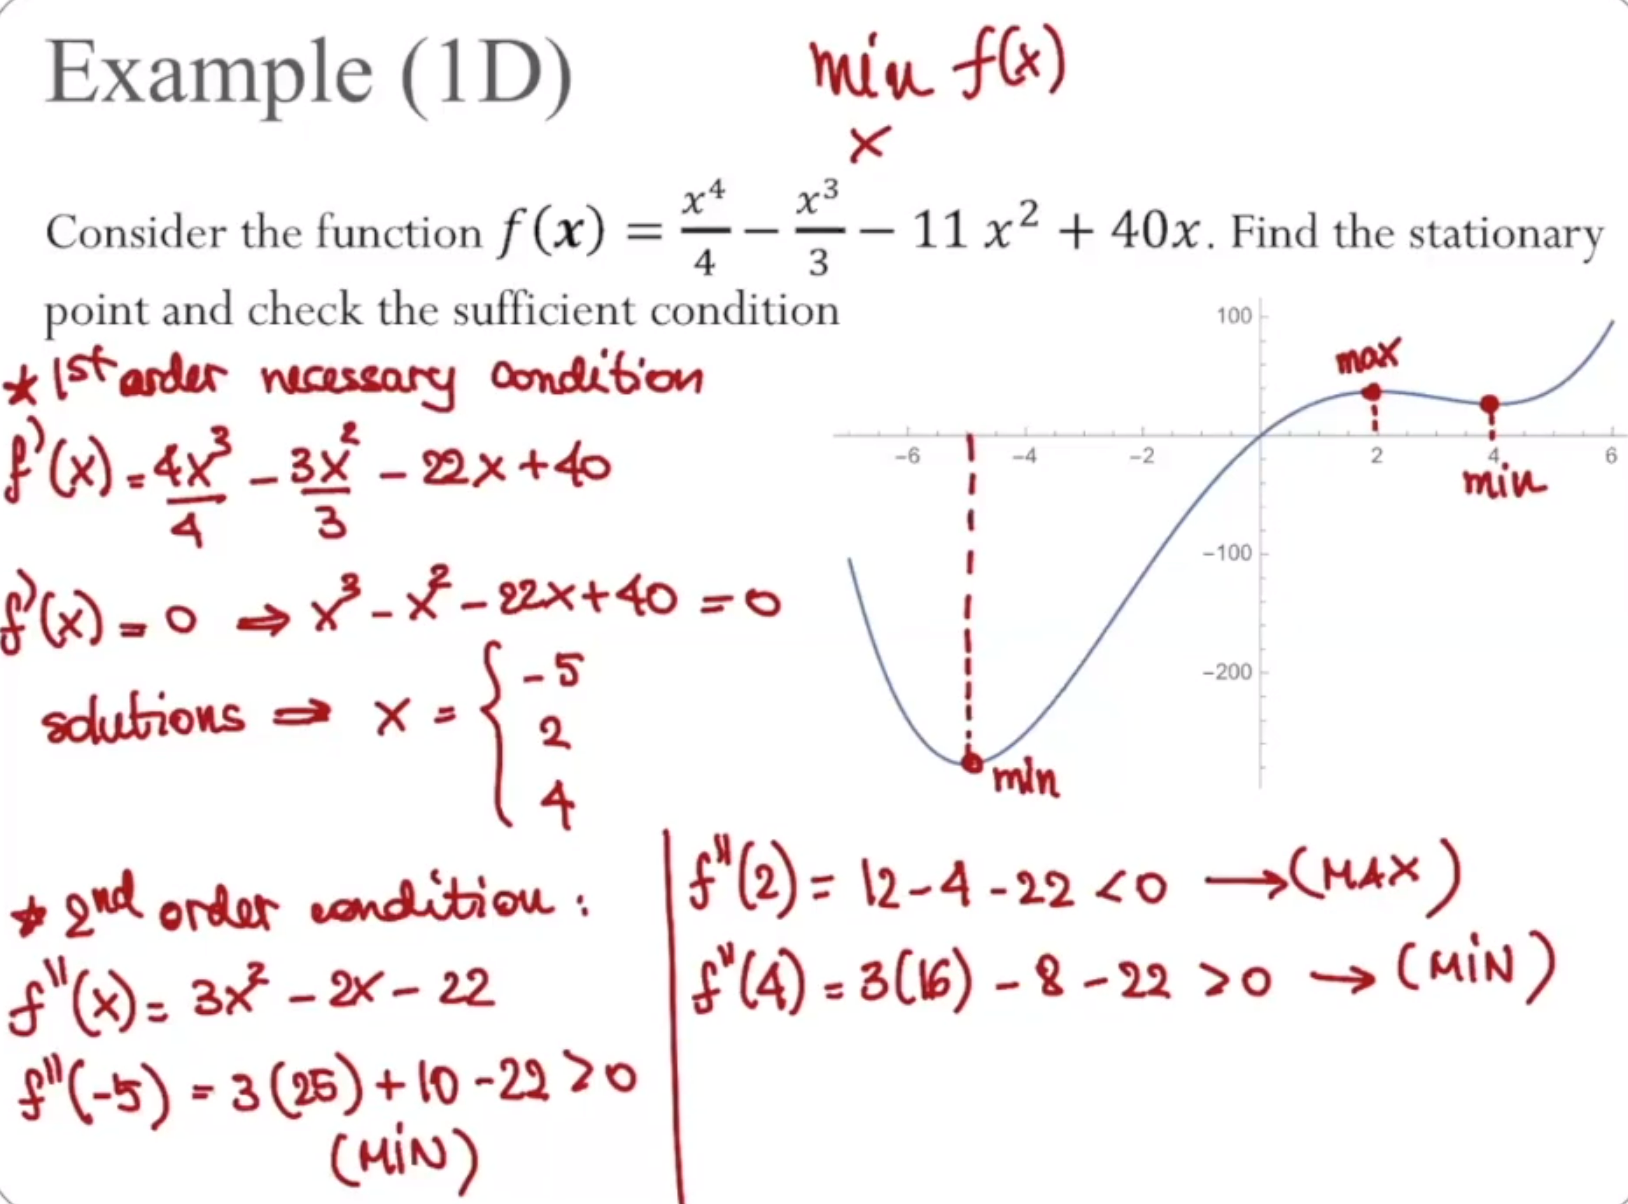 Example (1D)
min f(x)
x
Consider the function f(x) = x⁴/4 − x³/3 − 11 x² + 40x. Find the stationary
point and check the sufficient condition
* 1st order necessary condition
f'(x) = 4x³/4 − 3x²/3 − 22x + 40
f'(x) = 0 ⇒ x³ − x² − 22x + 40 = 0
solutions ⇒ x = { -5
2
4
100
max
-6 -4 -2 2 4 6
min
-100
-200
min
* 2nd order condition :
f''(x) = 3x² − 2x − 22
f''(-5) = 3(25) + 10 - 22 > 0
(MIN)
f''(2) = 12 - 4 - 22 < 0 → (MAX)
f''(4) = 3(16) - 8 - 22 > 0 → (MIN)